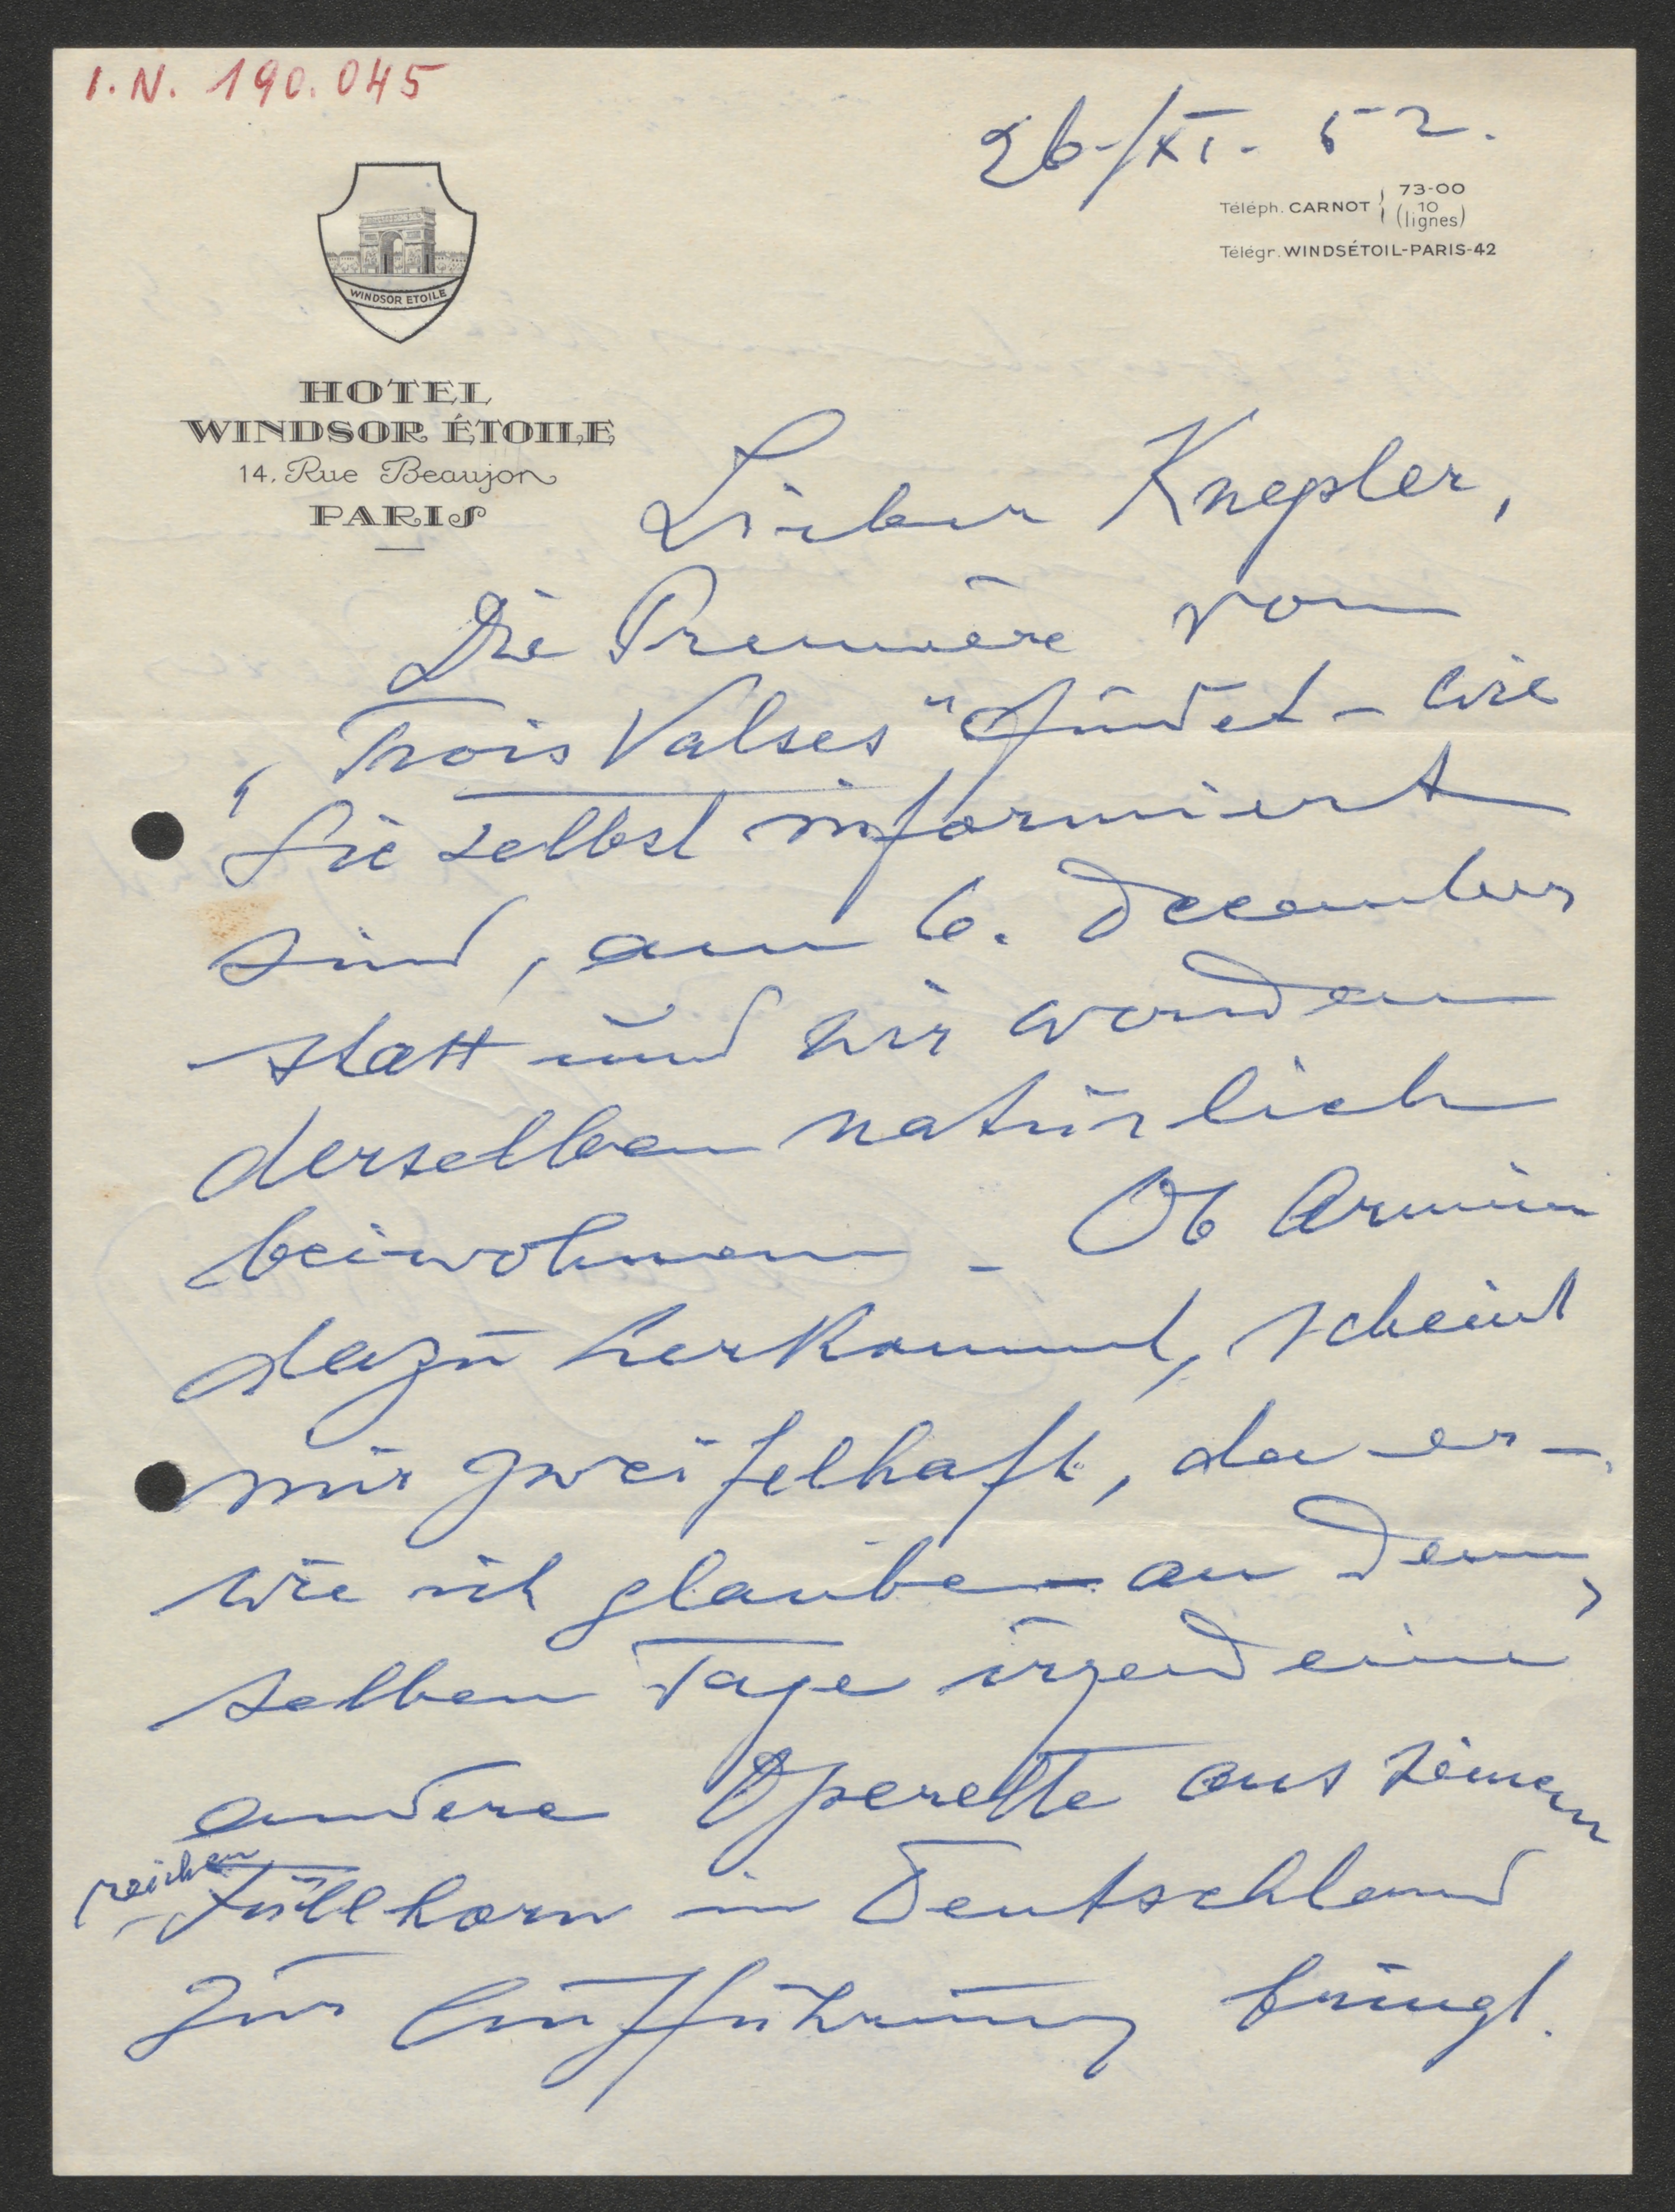 I.N. 190.045
26./XI. 52.
Téléph. CARNOT { 73-00
10
(lignes)
Télégr. WINDSÉTOIL-PARIS-42
WINDSOR ETOILE
HOTEL
WINDSOR ÉTOILE
14, Rue Beaujon
PARIS
Lieber Knepler,
Die Première von
„Trois Valses" findet – wie
Sie selbst informiert
sind, am 6. December
statt und wir werden
derselben natürlich
beiwohnen – Ob Armin
dazu herkommt, scheint
mir zweifelhaft, da er –
wie ich glaube – an dem-
selben Tage irgend eine
andere Operette aus seinem
reichen
Füllhorn in Deutschland
zur Aufführung bringt.